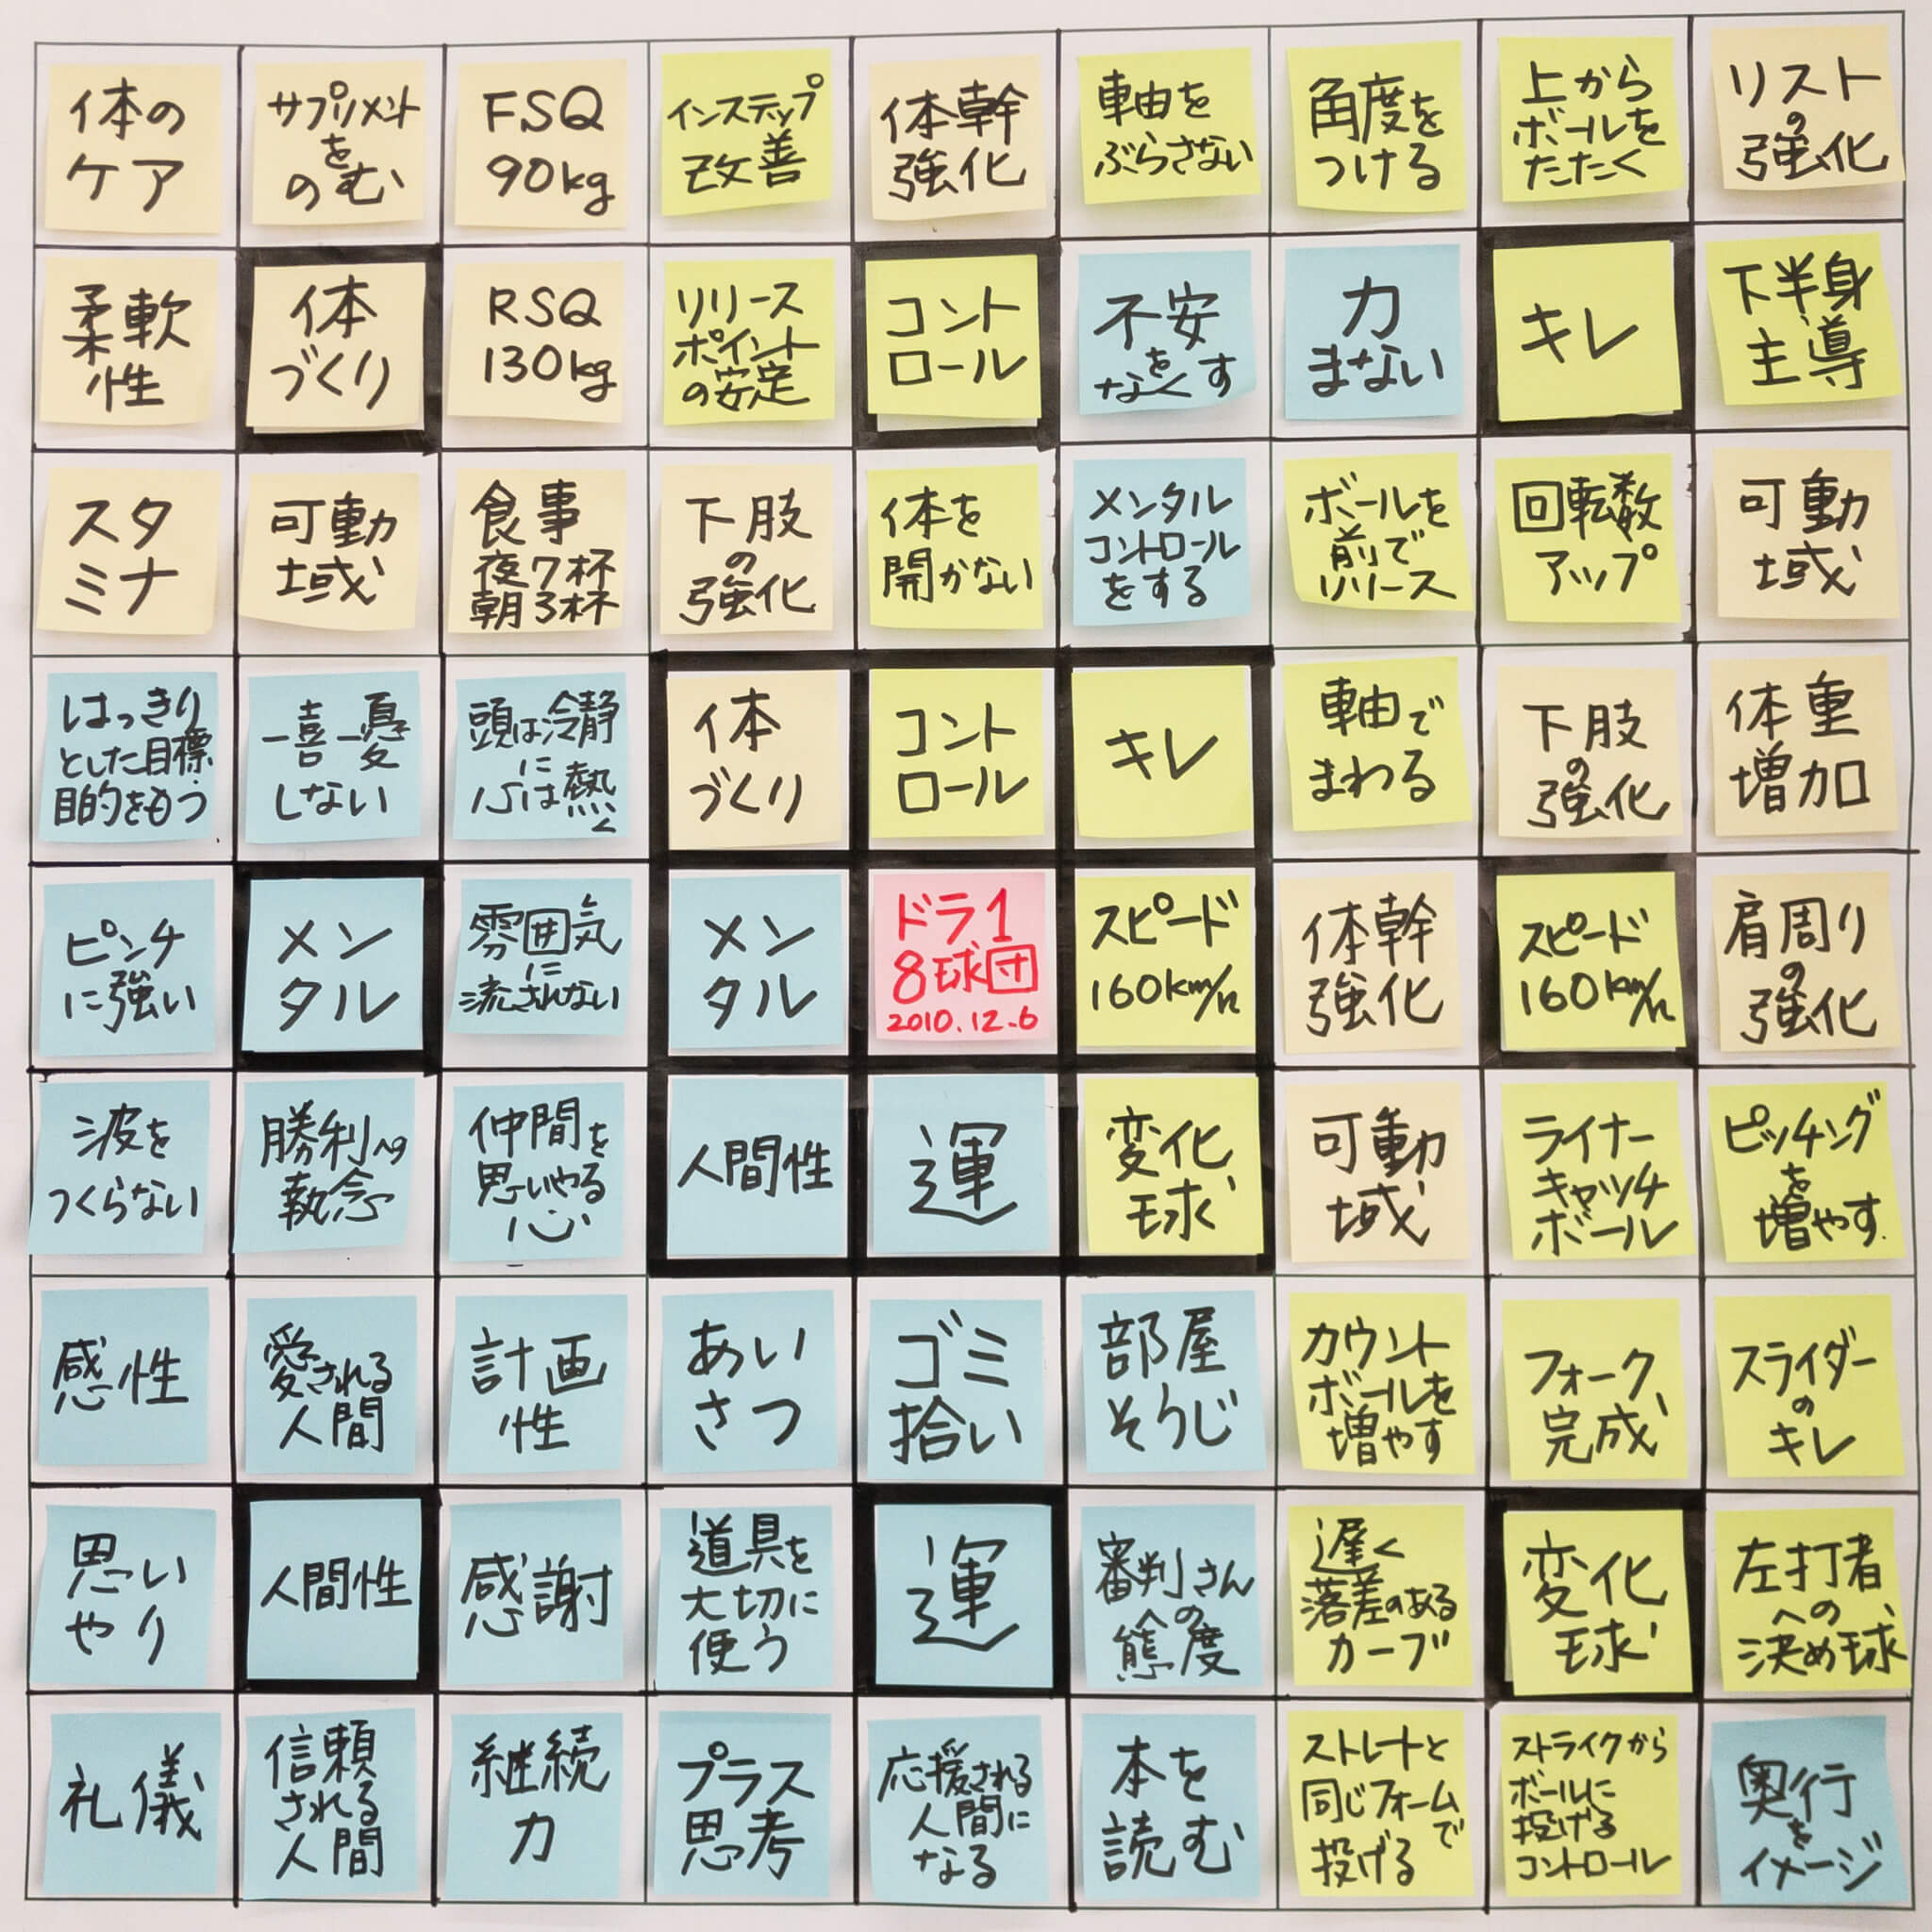 体の
ケア
サプリメント
を
のむ
FSQ
90kg
インステップ
改善
体幹
強化
軸を
ぶらさない
角度を
つける
上から
ボールを
たたく
リスト
の
強化
柔軟
性
体
づくり
RSQ
130kg
リリース
ポイント
の安定
コント
ロール
不安
を
なくす
力
まない
キレ
下半身
主導
スタ
ミナ
可動
域
食事
夜7杯
朝3杯
下肢
の
強化
体を
開かない
メンタル
コントロール
をする
ボールを
前で
リリース
回転数
アップ
可動
域
はっきり
とした目標
目的をもつ
一喜一憂
しない
頭は冷静
に
心は熱
く
体
づくり
コント
ロール
キレ
軸で
まわる
下肢
の
強化
体重
増加
ピンチ
に強い
メン
タル
雰囲気
に
流されない
メン
タル
ドラ1
8球団
2010.12.6
スピード
160km/h
体幹
強化
スピード
160km/h
肩周り
の
強化
波を
つくらない
勝利への
執念
仲間を
思いやる
心
人間性
運
変化
球
可動
域
ライナー
キャッチ
ボール
ピッチング
を
増やす.
感性
愛される
人間
計画
性
あい
さつ
ゴミ
拾い
部屋
そうじ
カウント
ボールを
増やす
フォーク
完成
スライダー
の
キレ
思い
やり
人間性
感謝
道具を
大切に
使う
運
審判さん
への
態度
遅く
落差のある
カーブ
変化
球
左打者
への
決め球
礼儀
信頼
される
人間
継続
力
プラス
思考
応援される
人間に
なる
本を
読む
ストレートと
同じフォームで
投げる
ストライクから
ボールに
投げる
コントロール
奥行
を
イメージ